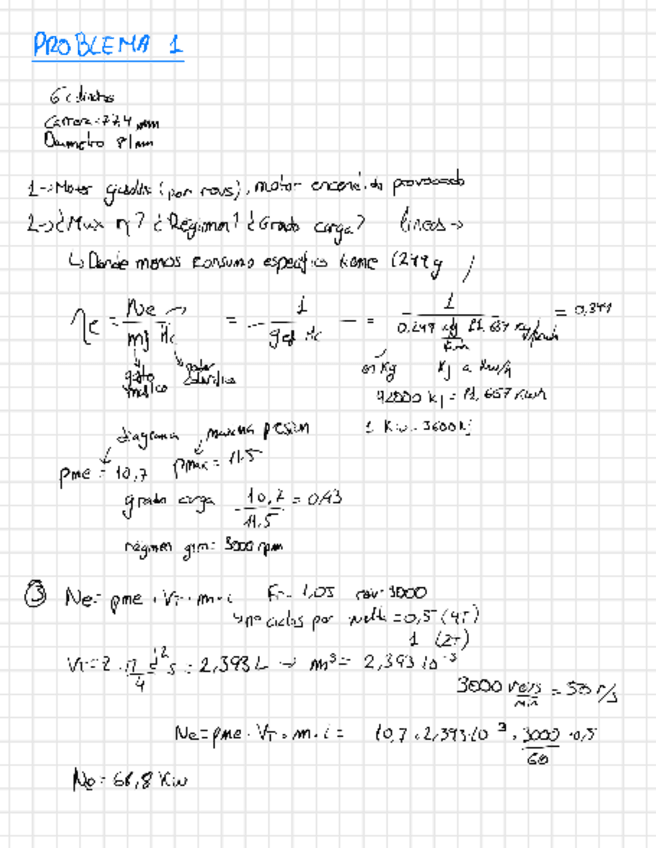 PROBLEMA 1
6 cilindros
Carrera: 77,4 mm
Diametro 81mm
1-> Motor gasolina (por revs), motor encendido provocado
2-> ¿Max η? ¿Régimen? ¿Grado carga? lineas ->
↳ Donde menos consumo especifico tiene (249 g /
ηe = Ne / mf Hc = 1 / gef Hc = 1 / 0,249 kg 11,657 kw/h = 0,344
gasto masico
poder calorifico
en kg kJ a kw/h
42000 kJ = 11,657 kwh
1 kw. 3600 kj
diagrama maxima presion
pme = 10,7 pmax = 11.5
grado carga 10,7 / 11,5 = 0,93
régimen giro: 3000 rpm
③ Ne = pme · VT · m · i 1,05 rev 3000
↳ nº ciclos por vuelta = 0,5 (4T)
1 (2T)
VT = z · π/4 d² s = 2,393 L -> m³ = 2,393 10⁻³
3000 rev/min = 50 r/s
Ne = pme · VT · m · i = 10,7 · 2,393·10⁻³ · 3000/60 · 0,5
Ne = 61,8 Kw